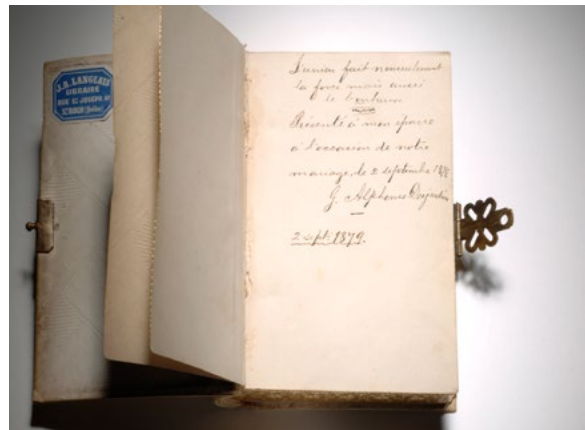 J.A. LANGLAIS
LIBRAIRE
RUE St. JOSEPH
St. ROCH
L'union fait non seulement
la force, mais aussi
le bonheur
Présenté à mon épouse
à l'occasion de notre
mariage, le 2 septembre
G. Alphonse Desjardins
2 sept. 1879.